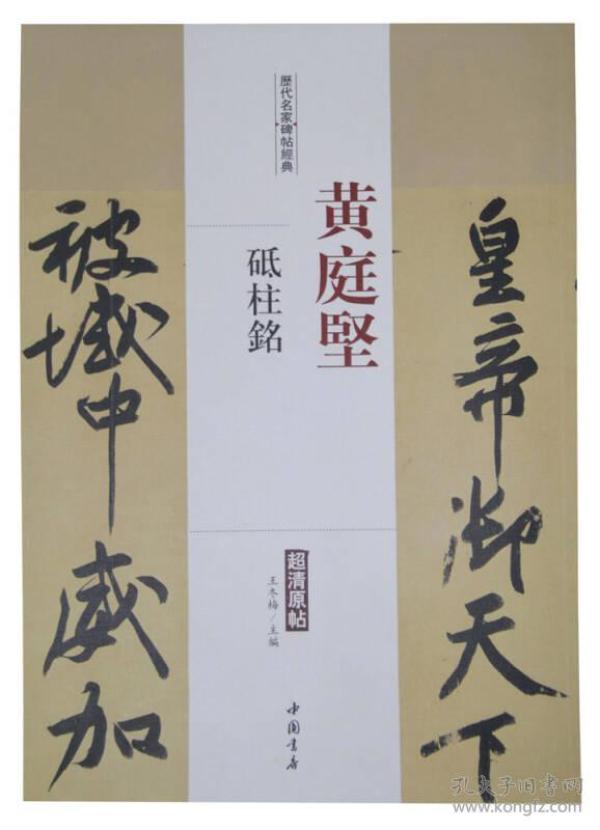 皇帝御天下
歷代名家碑帖經典
黄庭堅
砥柱銘
超清原帖
王冬梅/主編
中国書店
被域中威加
孔夫子旧书网
www.kongfz.com